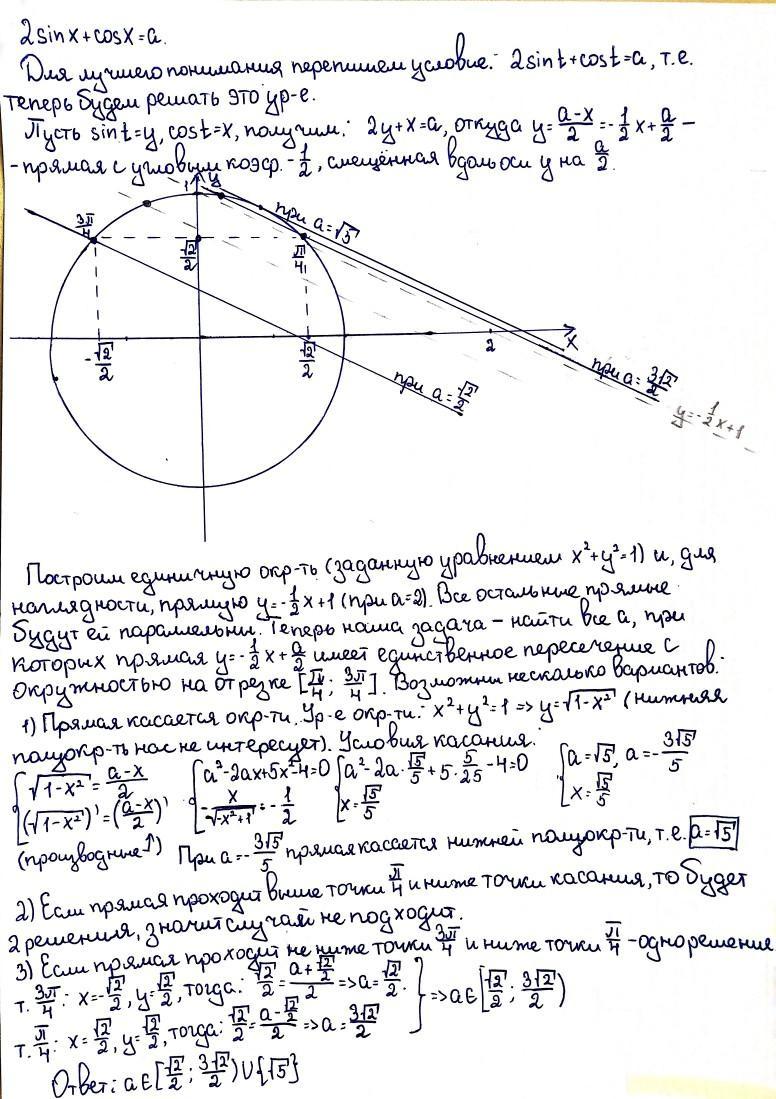 2sinx+cosx=a.
Для лучшего понимания перепишем условие: 2sint+cost=a, т.е.
теперь будем решать это ур-е.
Пусть sint=y, cost=x, получим: 2y+x=a, откуда y=(a-x)/2=-1/2x+a/2 -
- прямая с угловым коэф. -1/2, смещённая вдоль оси y на a/2.
1
y
при a=√5
3π/4
√2/2
π/4
x
2
-√2/2
√2/2
при a=3√2/2
при a=√2/2
y=-1/2x+1
Построим единичную окр-ть (заданную уравнением x²+y²=1) и, для
наглядности, прямую y=-1/2x+1 (при a=2). Все остальные прямые
будут ей параллельны. Теперь наша задача – найти все a, при
которых прямая y=-1/2x+a/2 имеет единственное пересечение с
окружностью на отрезке [π/4; 3π/4]. Возможны несколько вариантов:
1) Прямая касается окр-ти. Ур-е окр-ти: x²+y²=1 => y=√(1-x²) (нижняя
полуокр-ть нас не интересует). Условия касания:
{√(1-x²)=(a-x)/2 {a²-2ax+5x²-4=0 {a²-2a·√5/5+5·5/25-4=0 {a=√5, a=-3√5/5
{(√(1-x²))'=((a-x)/2)' {-x/√(-x²+1)=-1/2 {x=√5/5 {x=√5/5
(производные↑) При a=-3√5/5 прямая касается нижней полуокр-ти, т.е. a=√5
2) Если прямая проходит выше точки π/4 и ниже точки касания, то будет
2 решения, значит случай не подходит.
3) Если прямая проходит не ниже точки 3π/4 и ниже точки π/4 - одно решение
т. 3π/4: x=-√2/2, y=√2/2, тогда: √2/2=(a+√2/2)/2 => a=√2/2. } => a∈[√2/2; 3√2/2)
т. π/4: x=√2/2, y=√2/2, тогда: √2/2=(a-√2/2)/2 => a=3√2/2
Ответ: a∈[√2/2; 3√2/2)∪{√5}